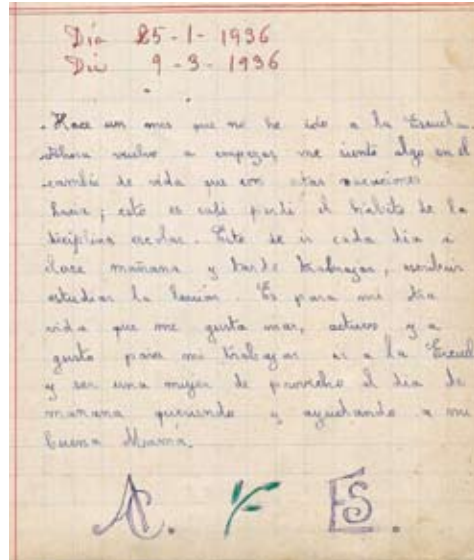 Día 25-1-1936
Dia 9-3-1936
Hace un mes que no he ido a la Escuel
Ahora vuelvo a empezar me siento algo en el
cambio de vida que con estas vacaciones
hacia; esto es casi perdi el hábito de la
disciplina escolar. Esto de ir cada día a
clase mañana y tarde trabajar, escribir
estudiar la lección. Es para mi otra
vida que me gusta mas, activo y a
gusto para mi trabajar ir a la Escuel
y ser una mujer de provecho el día de
mañana queriendo y ayudando a mi
buena Mamá.
AC. ES.